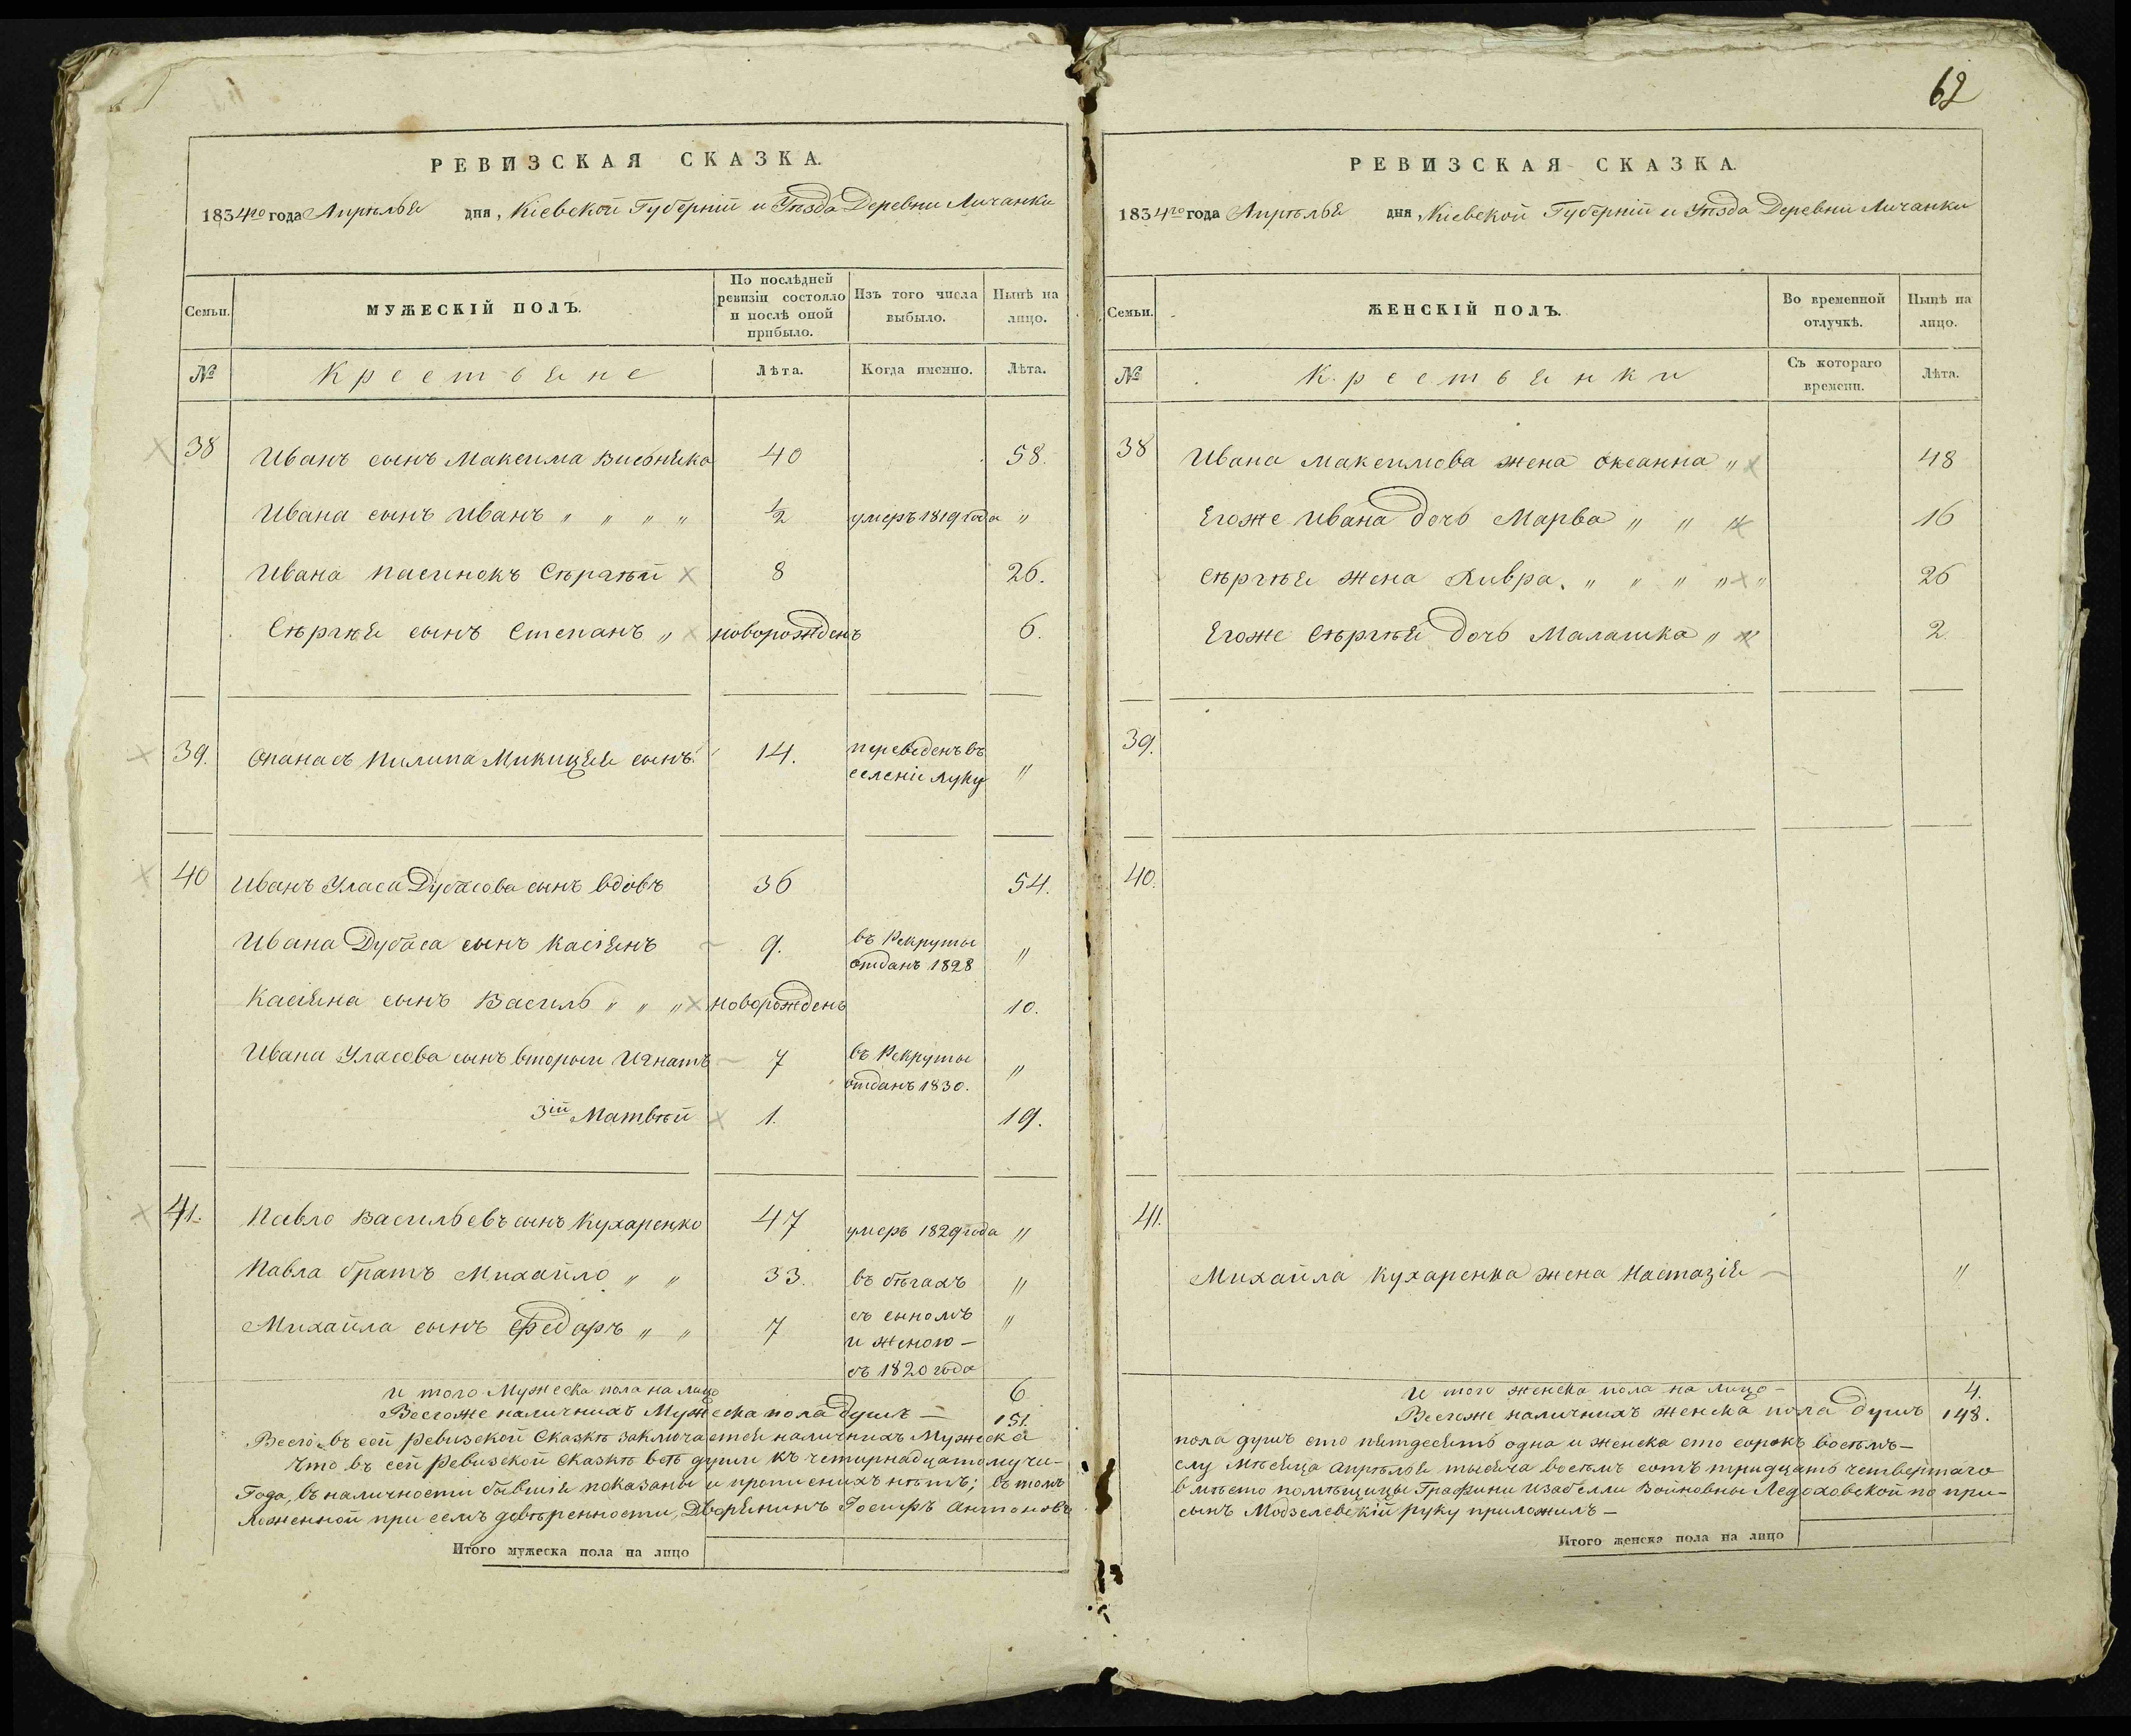 РЕВИЗСКАЯ СКАЗКА.
1834го года Апрѣля дня, Кіевской Губерніи и Уѣзда Деревни Личанки
Семьи.
МУЖЕСКІЙ ПОЛЪ.
По послѣдней ревизіи состояло и послѣ оной прибыло.
Изъ того числа выбыло.
Нынѣ на лицо.
№
Крестьяне
Лѣта.
Когда именно.
Лѣта.
38 Иванъ сынъ Максима 40 58.
Ивана сынъ Иванъ " " " " 1/2 умеръ 1819 года "
Ивана пасинокъ Сѣргѣй 8 26.
Сѣргѣя сынъ Степанъ " новорожденъ 6.
39. Опанасъ Пилипа Микицея сынъ 14. переведенъ въ
селеніи Луку "
40 Иванъ Уласа Дубасова сынъ вдовъ 36 54.
Ивана Дубаса сынъ Касіянъ 9. въ Рекруты
отданъ 1828 "
Касіяна сынъ Василь " " " новорожденъ 10.
Ивана Уласова сынъ вторый Игнатъ 7 въ Рекруты
отданъ 1830. "
3ій Матвѣй 1. 19.
41. Павло Васильевъ сынъ Кухаренко 47 умеръ 1829 года "
Павла братъ Михайло " " 33. въ бѣгахъ "
Михайла сынъ Федоръ " " 7 съ сыномъ "
и женою —
съ 1820 года
и того Мужеска пола на лицо 6
Всегоже наличнихъ Мужеска пола душъ — 151.
Всего въ сей ревизской Сказкѣ заключается наличнихъ Мужеска
что въ сей ревизской Сказкѣ всѣ души къ четирнадцатому чи-
Года, въ наличности бывшія показаны и прописнихъ нѣтъ; въ томъ
ложенной при семъ довѣренности, Дворянинъ Іосифъ Антоновъ
Итого мужеска пола на лицо
62
РЕВИЗСКАЯ СКАЗКА.
1834го года Апрѣля дня, Кіевской Губерніи и Уѣзда Деревни Личанки
Семьи.
ЖЕНСКІЙ ПОЛЪ.
Во временной отлучкѣ.
Нынѣ на лицо.
№
Крестьянки
Съ котораго времени.
Лѣта.
38 Ивана Максимова жена Оксанна " 48
Егоже Ивана дочь Марва " " " 16
Сѣргѣя жена Хивра. " " " " " 26
Егоже Сѣргѣя дочь Малашка " " 2.
39.
40.
41.
Михайла Кухаренка жена Настазія — "
и того женска пола на лицо — 4.
Всегоже наличнихъ женска пола душъ 148.
пола душъ сто пятдесятъ одна и женска сто сорокъ восѣмъ —
слу Мѣсяца Апрѣля тысяча восѣмъ сотъ тридцать четвертаго
вмѣсто помѣщицы Графини Изабелли Войновны Ледоховской по при-
сынъ Модзелевскій руку приложилъ —
Итого женска пола на лицо